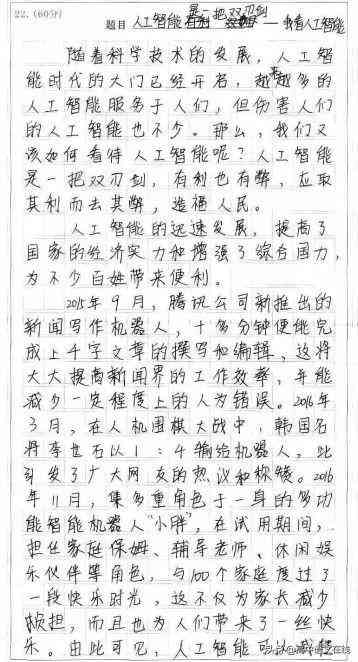 22.(60分)
是一把双刃剑
题目 人工智能有利 —— 我看人工智能
随着科学技术的发展，人工智
能时代的大门已经开启，越来越多的
人工智能服务于人们，但伤害人们
的人工智能也不少。那么，我们又
该如何看待人工智能呢？人工智能
是一把双刃剑，有利也有弊，应取
其利而去其弊，造福人民。
人工智能的迅速发展，提高了
国家的经济实力和增强了综合国力，
为不少百姓带来便利。
2015年9月，腾讯公司新推出的
新闻写作机器人，十多分钟便能完
成上千字文章的撰写和编辑，这将
大大提高新闻界的工作效率，并能
减少一定程度上的人为错误。2016年
3月，在人机围棋大战中，韩国名
将李世石以1：4输给机器人，此
引发了广大网友的热议和称赞。2016
年11月，集多重角色于一身的多功
能智能机器人“小胖”，在试用期间，
担任家庭保姆、辅导老师、休闲娱
乐伙伴等角色，与100个家庭度过了
一段快乐时光，这不仅为家长减少
负担，而且也为人们带来了一丝快
乐。由此可见，人工智能可以